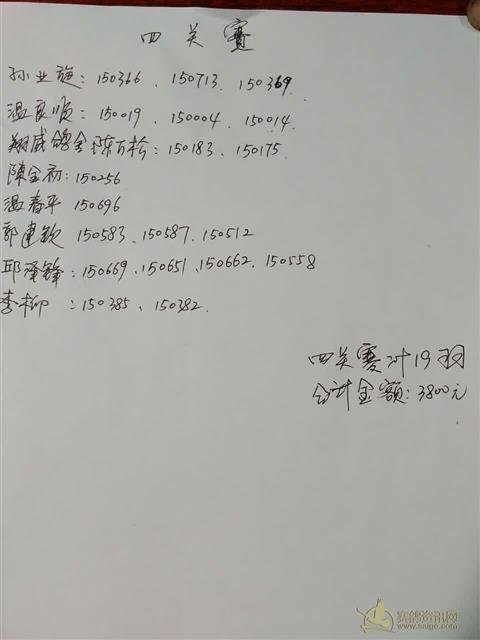 四关赛
孙业旋：150366、150713、150369.
温良顺：150019、150004、150014.
翔威鸽舍:陈百松：150183、150175
陳金初：150256
温春平 150696
郭建钦 150583、150587、150512
邱泽锋：150669、150651、150662、150558
李柳：150385、150382.
四关赛计19羽
合计金额：3800元
赛鸽资讯网
www.saige.com